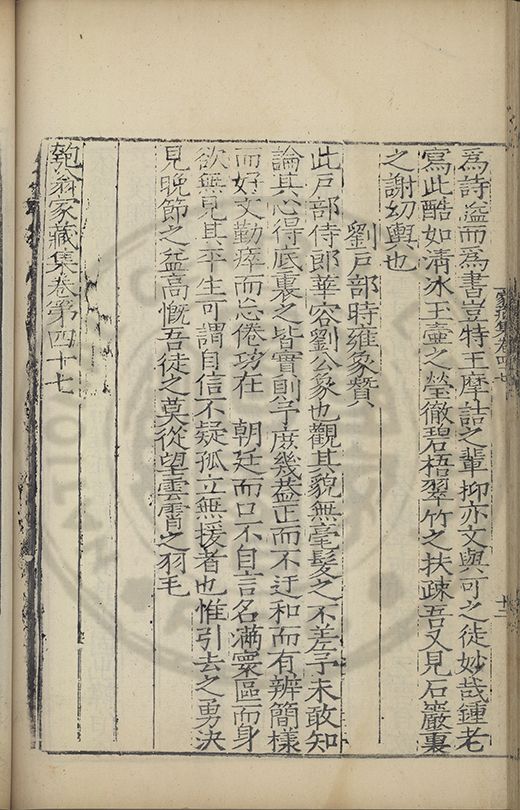 為詩溢而為書豈特王摩詰之輩抑亦文與可之徒妙哉鍾老
寫此酷如清冰玉壺之瑩徹碧梧翠竹之扶疎吾又見石巖裏
之謝幼輿也
劉戶部時雍象贊
此戶部侍郎華容劉公象也觀其貌無毫髮之不差予未敢知
論其心得底裏之皆實則予庶幾葢正而不迂和而有辨簡樣
而好文勤瘁而忘倦功在 朝廷而口不自言名滿寰區而身
欲無見其平生可謂自信不疑孤立無援者也惟引去之勇決
見晚節之益高慨吾徒之莫從望雲霄之羽毛
匏翁家藏集卷第四十七